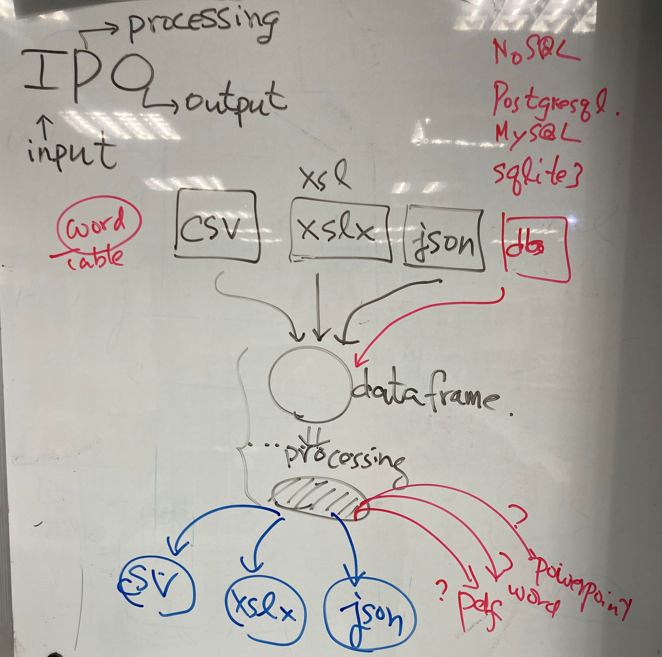 processing
IPO
output
input
NoSQL
Postgresql.
MySQL
sqlite3
xsl
word
table
csv
xslx
json
db
dataframe.
...processing
csv
xslx
json
?
pdf
?
word
?
powerpoint